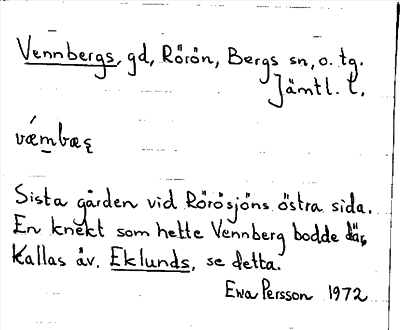 Vennbergs, gd, Rörön, Bergs sn, o. tg.
Jämtl. l.
vǽmbæȩ
Sista gården vid Rörösjöns östra sida.
En knekt som hette Vennberg bodde där,
Kallas äv. Eklunds, se detta.
Ewa Persson 1972